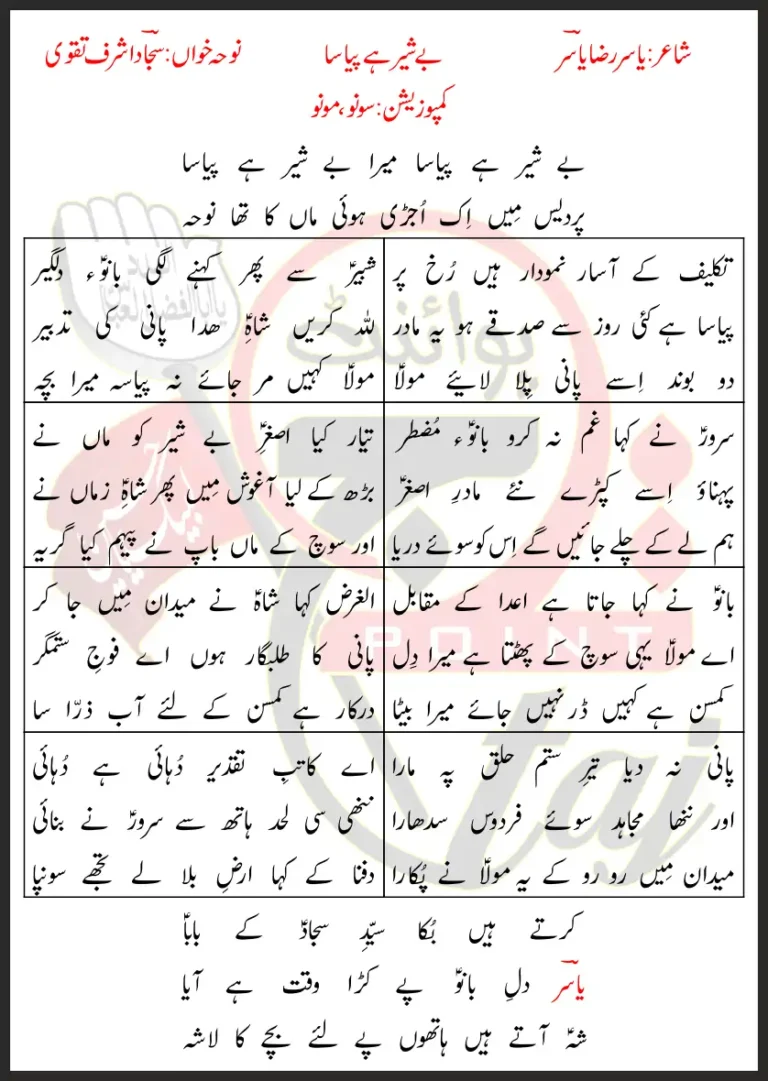 شاعر: یاسر رضا یاسرؔ
بے شیر ہے پیاسا
نوحہ خواں: سجاد اشرف تقوی
کمپوزیشن: سونو، مونو
بے شیر ہے پیاسا میرا بے شیر ہے پیاسا
پردیس مِیں اِک اُجڑی ہوئی ماں کا تھا نوحہ
تکلیف کے آسار نمودار ہیں رُخ پر
پیاسا ہے کئی روز سے صدقے ہو یہ مادر
دو بوند اِسے پانی پِلا لائیے مولاؑ
شبیرؑ سے پھر کہنے لگی بانوؑء دلگیر
للہ کریں شاہِؑ ھدا پانی کی تدبیر
مولاؑ کہیں مر جائے نہ پیاسہ میرا بچہ
سرورؑ نے کہا غم نہ کرو بانوؑء مُضطر
پہناؤ اِسے کپڑے نئے مادرِ اصغرؑ
ہم لے کے چلے جائیں گے اِس کو سوئے دریا
تیّار کیا اصغرِؑ بے شیر کو ماں نے
بڑھ کے لیا آغوش مِیں پھر شاہِؑ زماں نے
اور سوچ کے ماں باپ نے پیہم کیا گریہ
بانوؑ نے کہا جاتا ہے اعدا کے مقابل
اے مولاؑ یہی سوچ کے پھٹتا ہے میرا دِل
کمسن ہے کہیں ڈر نہیں جائے میرا بیٹا
الغرض کہا شاہؑ نے میدان مِیں جا کر
پانی کا طلبگار ہوں اے فوجِ ستمگر
درکار ہے کمسن کے لئے آب ذرّا سا
پانی نہ دیا تیرِ ستم حلق پہ مارا
اور ننھا مجاہد سوئے فردوس سدھارا
میدان مِیں رو رو کے یہ مولاؑ نے پُکارا
اے کاتبِ تقدیر دُہائی ہے دُہائی
ننھی سی لحد ہاتھ سے سرورؑ نے بنائی
دفنا کے کہا ارضِ بلا لے تجھے سونپا
کرتے ہیں بُکا سیّدِ سجادؑ کے باباؑ
یاسرؔ دلِ بانوؑ پے کڑا وقت ہے آیا
شہؑ آتے ہیں ہاتھوں پے لئے بچے کا لاشہ
پوائنٹ
POINT
taj